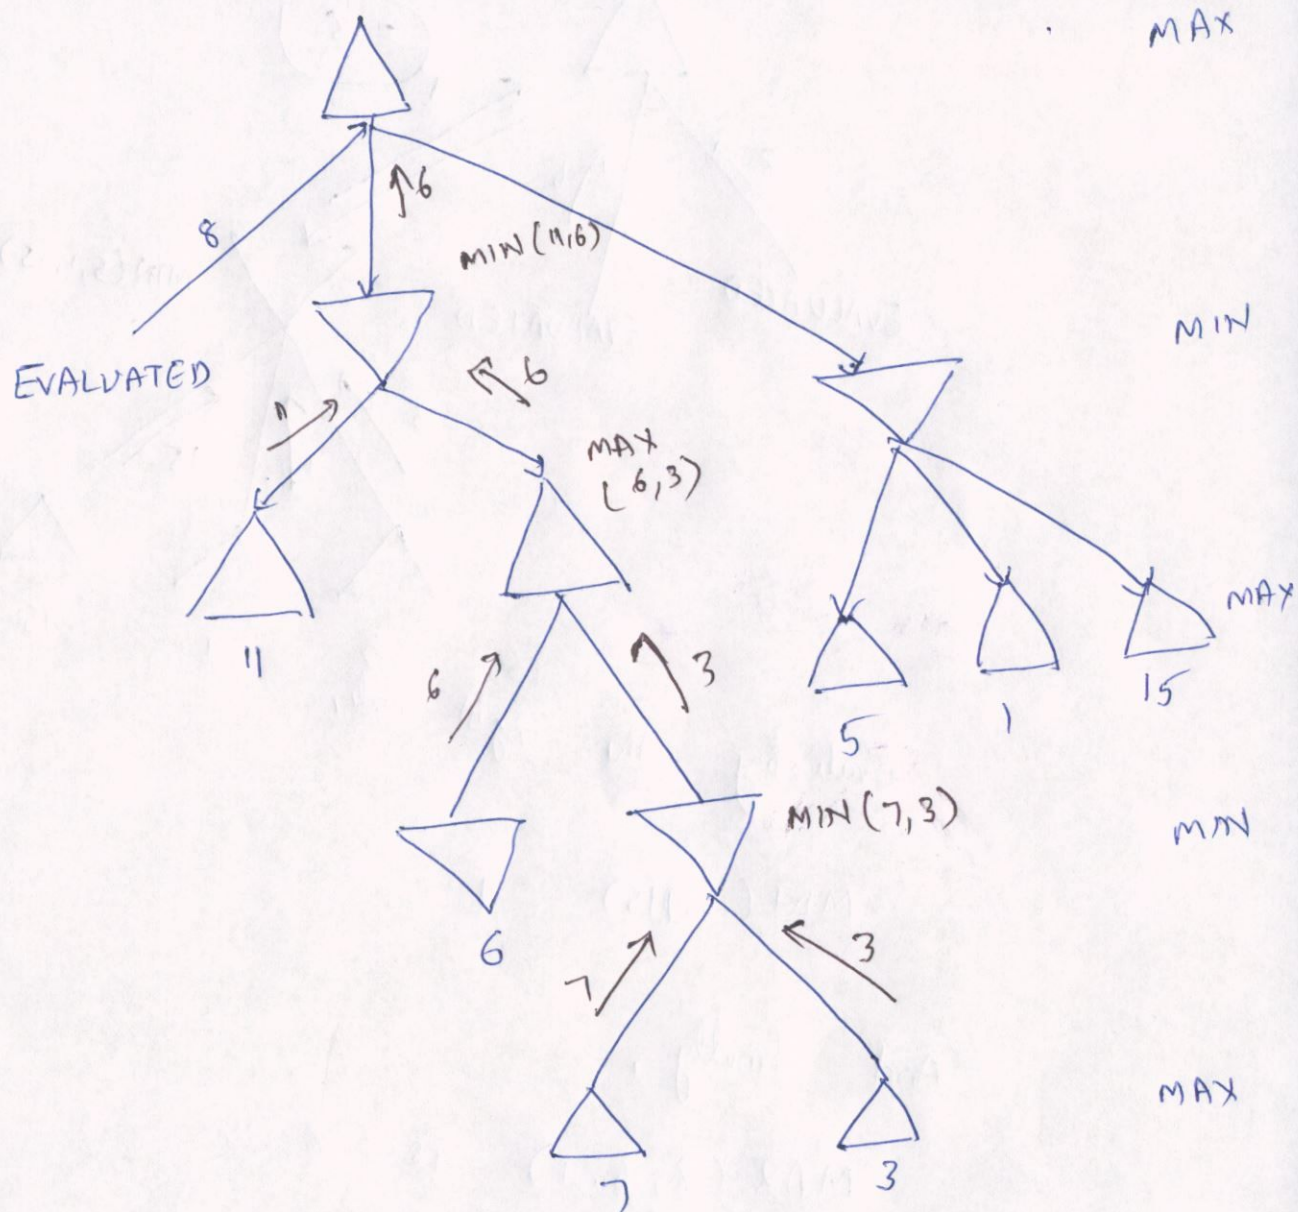 MAX
↑6
8
MIN (11,6)
MIN
EVALUATED
6
11
MAX
(6,3)
MAX
11
6
3
5
1
15
MIN (7,3)
MIN
6
7
3
MAX
7
3